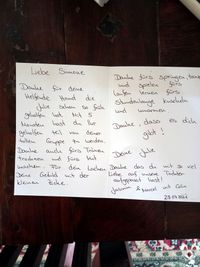 Liebe Simone
Danke für deine
Helfende Hand die
Julie schon so früh
geholfen hat. Mit 5
Monaten hast du ihr
geholfen teil von deiner
tollen Gruppe zu werden.
Danke auch fürs Tränen
Trocknen und fürs Mut
machen. Für dein Lachen
Deine Geduld mit der
kleinen Zicke.
Danke fürs springen, toben
und spielen fürs
laufen lernen fürs
Stundenlange kuscheln
und umarmen
Danke, dass es dich
gibt!
Deine Julie
Danke das du mit so viel
Liebe auf unsere Tochter
aufgepasst hast!